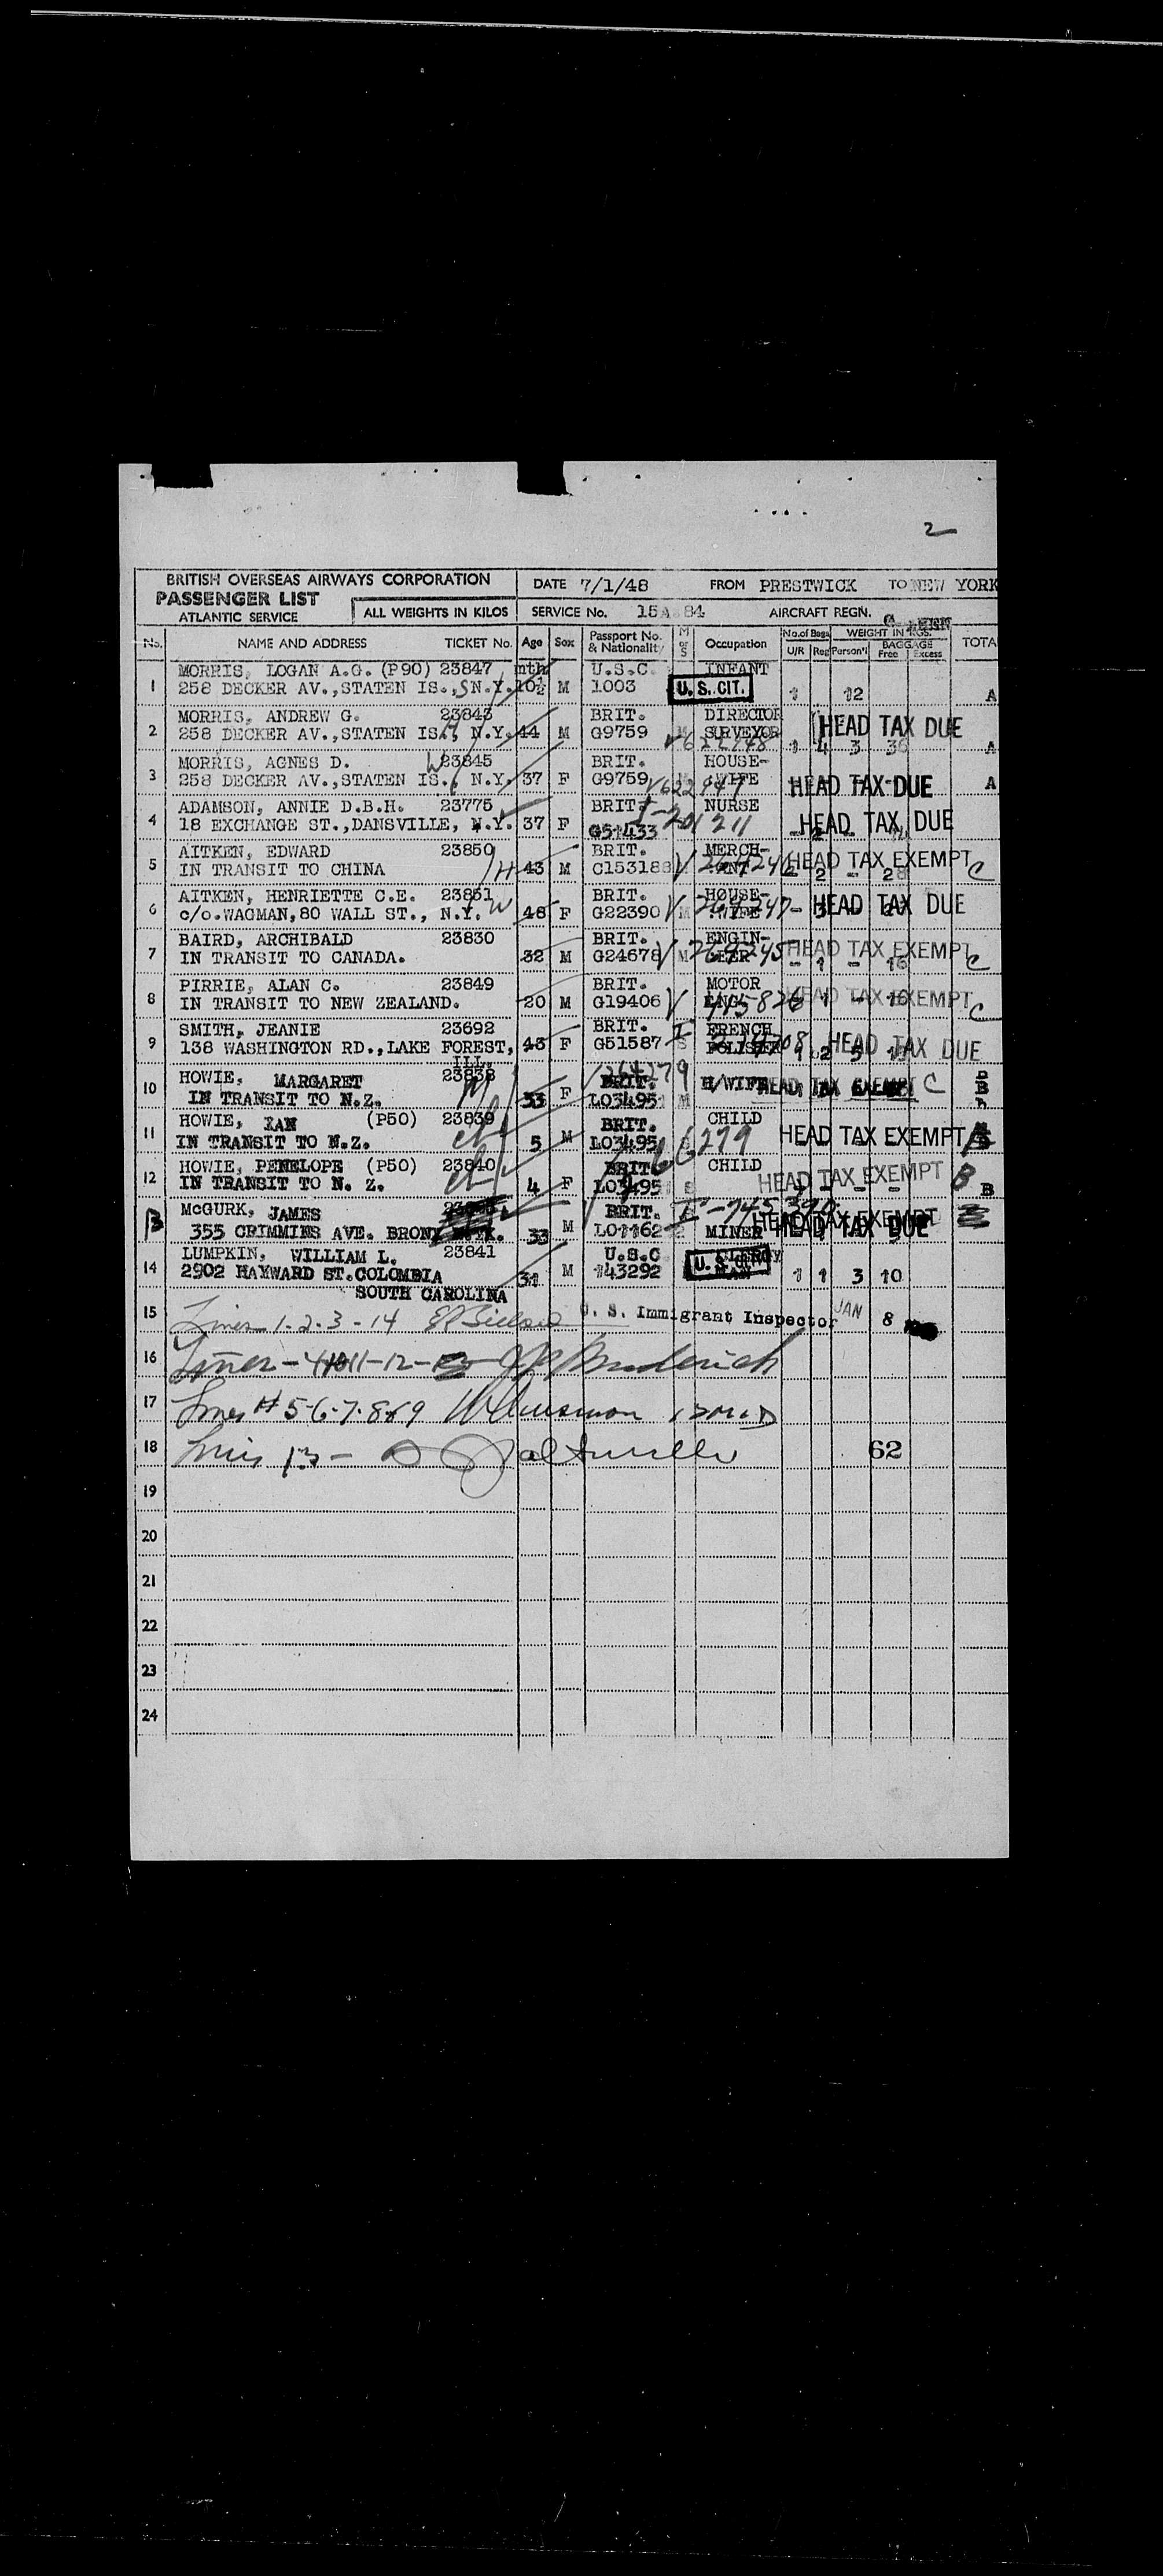 2
BRITISH OVERSEAS AIRWAYS CORPORATION
PASSENGER LIST
ATLANTIC SERVICE
ALL WEIGHTS IN KILOS
DATE 7/1/48 FROM PRESTWICK TO NEW YORK
SERVICE No. 15A 84 AIRCRAFT REGN.
No. NAME AND ADDRESS TICKET No. Age Sex Passport No. & Nationality M or S Occupation No. of Bags U/R Reg WEIGHT IN KGS. Person'l BAGGAGE Free Excess TOTA
MORRIS, LOGAN A.G. (P90) 23847 mth U.S.C. INFANT
1 258 DECKER AV., STATEN IS., N.Y. 10½ M 1003 U.S. CIT. 1 12 A
MORRIS, ANDREW G. 23843 BRIT. DIRECTOR
2 258 DECKER AV., STATEN IS., N.Y. 44 M G9759 M SURVEYOR 622948 1 4 3 36 HEAD TAX DUE A
MORRIS, AGNES D. W 23845 BRIT. HOUSE-
3 258 DECKER AV., STATEN IS., N.Y. 37 F G9759 M WIFE 622947 HEAD TAX DUE A
ADAMSON, ANNIE D.B.H. 23775 BRIT. NURSE
4 18 EXCHANGE ST., DANSVILLE, N.Y. 37 F G51433 I-201211 HEAD TAX DUE
AITKEN, EDWARD 23850 BRIT. MERCH-
5 IN TRANSIT TO CHINA H 43 M C153188 V 264246 ANT - 2 - 28 HEAD TAX EXEMPT C
AITKEN, HENRIETTE C.E. 23851 BRIT. HOUSE-
6 c/o. WAGMAN, 80 WALL ST., N.Y. W 48 F G22390 M V 264247 WIFE HEAD TAX DUE
BAIRD, ARCHIBALD 23830 BRIT. ENGIN-
7 IN TRANSIT TO CANADA. 32 M G24678 V M 264245 EER - 1 - 16 HEAD TAX EXEMPT C
PIRRIE, ALAN C. 23849 BRIT. MOTOR
8 IN TRANSIT TO NEW ZEALAND. 20 M G19406 V 415826 ENG. HEAD TAX EXEMPT C
SMITH, JEANIE 23692 BRIT. I FRENCH
9 138 WASHINGTON RD., LAKE FOREST, 43 F G51587 S POLISHER 1 2 5 HEAD TAX DUE
ILL.
HOWIE, MARGARET 23838 V264279 BRIT. H/WIFE
10 IN TRANSIT TO N.Z. 33 F LO3495 M HEAD TAX EXEMPT C B
HOWIE, IAN (P50) 23839 BRIT. CHILD
11 IN TRANSIT TO N.Z. ch 5 M LO3495 HEAD TAX EXEMPT
HOWIE, PENELOPE (P50) 23840 BRIT. CHILD
12 IN TRANSIT TO N. Z. ch 4 F LO3495 S HEAD TAX EXEMPT B B
McGURK, JAMES BRIT. I-745390
13 355 CRIMMINS AVE. BRONX 33 M MINER HEAD TAX EXEMPT HEAD TAX DUE
LUMPKIN, WILLIAM L. 23841 U.S.C CLERGY
14 2902 HAYWARD ST. COLOMBIA 31 M 143292 MAN U.S. CIT. 1 1 3 10
SOUTH CAROLINA
15 Lines 1-2-3-14 U. S. Immigrant Inspector JAN 8
16 Lines - 4 10 11-12- Broderich
17 Lines # 5-6-7-8&9
18 Lines 13 - 62
19
20
21
22
23
24